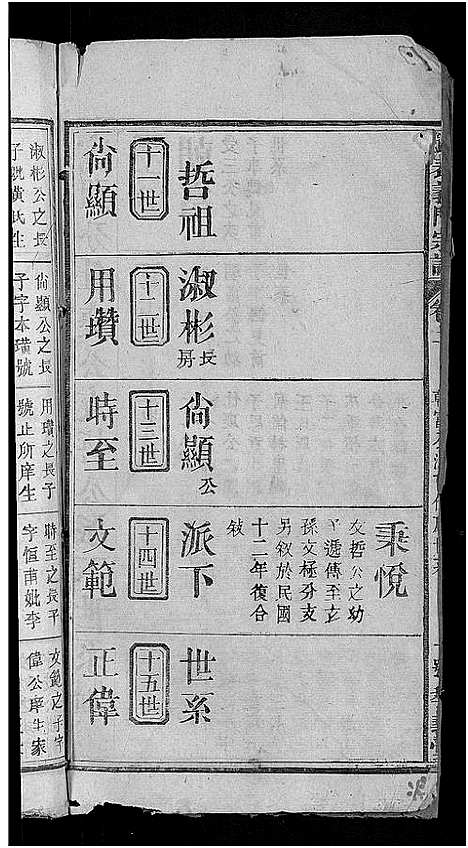 秉悅
友哲公之幼
遞傳至玄
孫文極分支
另敘於民國
十二年復合
敍
哲祖
淑彬長房
尙顯公
派下
世系
十一世
十二世
十三世
十四世
十五世
尙顯
用瓚
時至
文範
正偉
淑彬公之長
黃氏生
尙顯公之長
子字本璜號
用瓚之長子
號止所庠生
時至之長子
字恒甫妣李
文範之子字
偉公庠生家